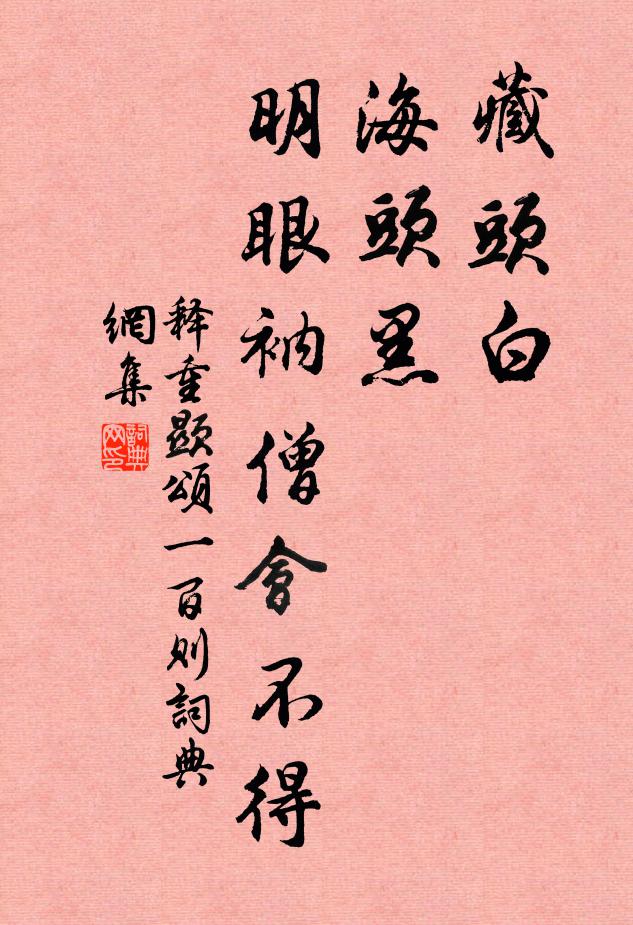 藏頭白
海頭黑
明眼衲僧會不得
释重顯頌一百则詞典
網集
詞典
网印